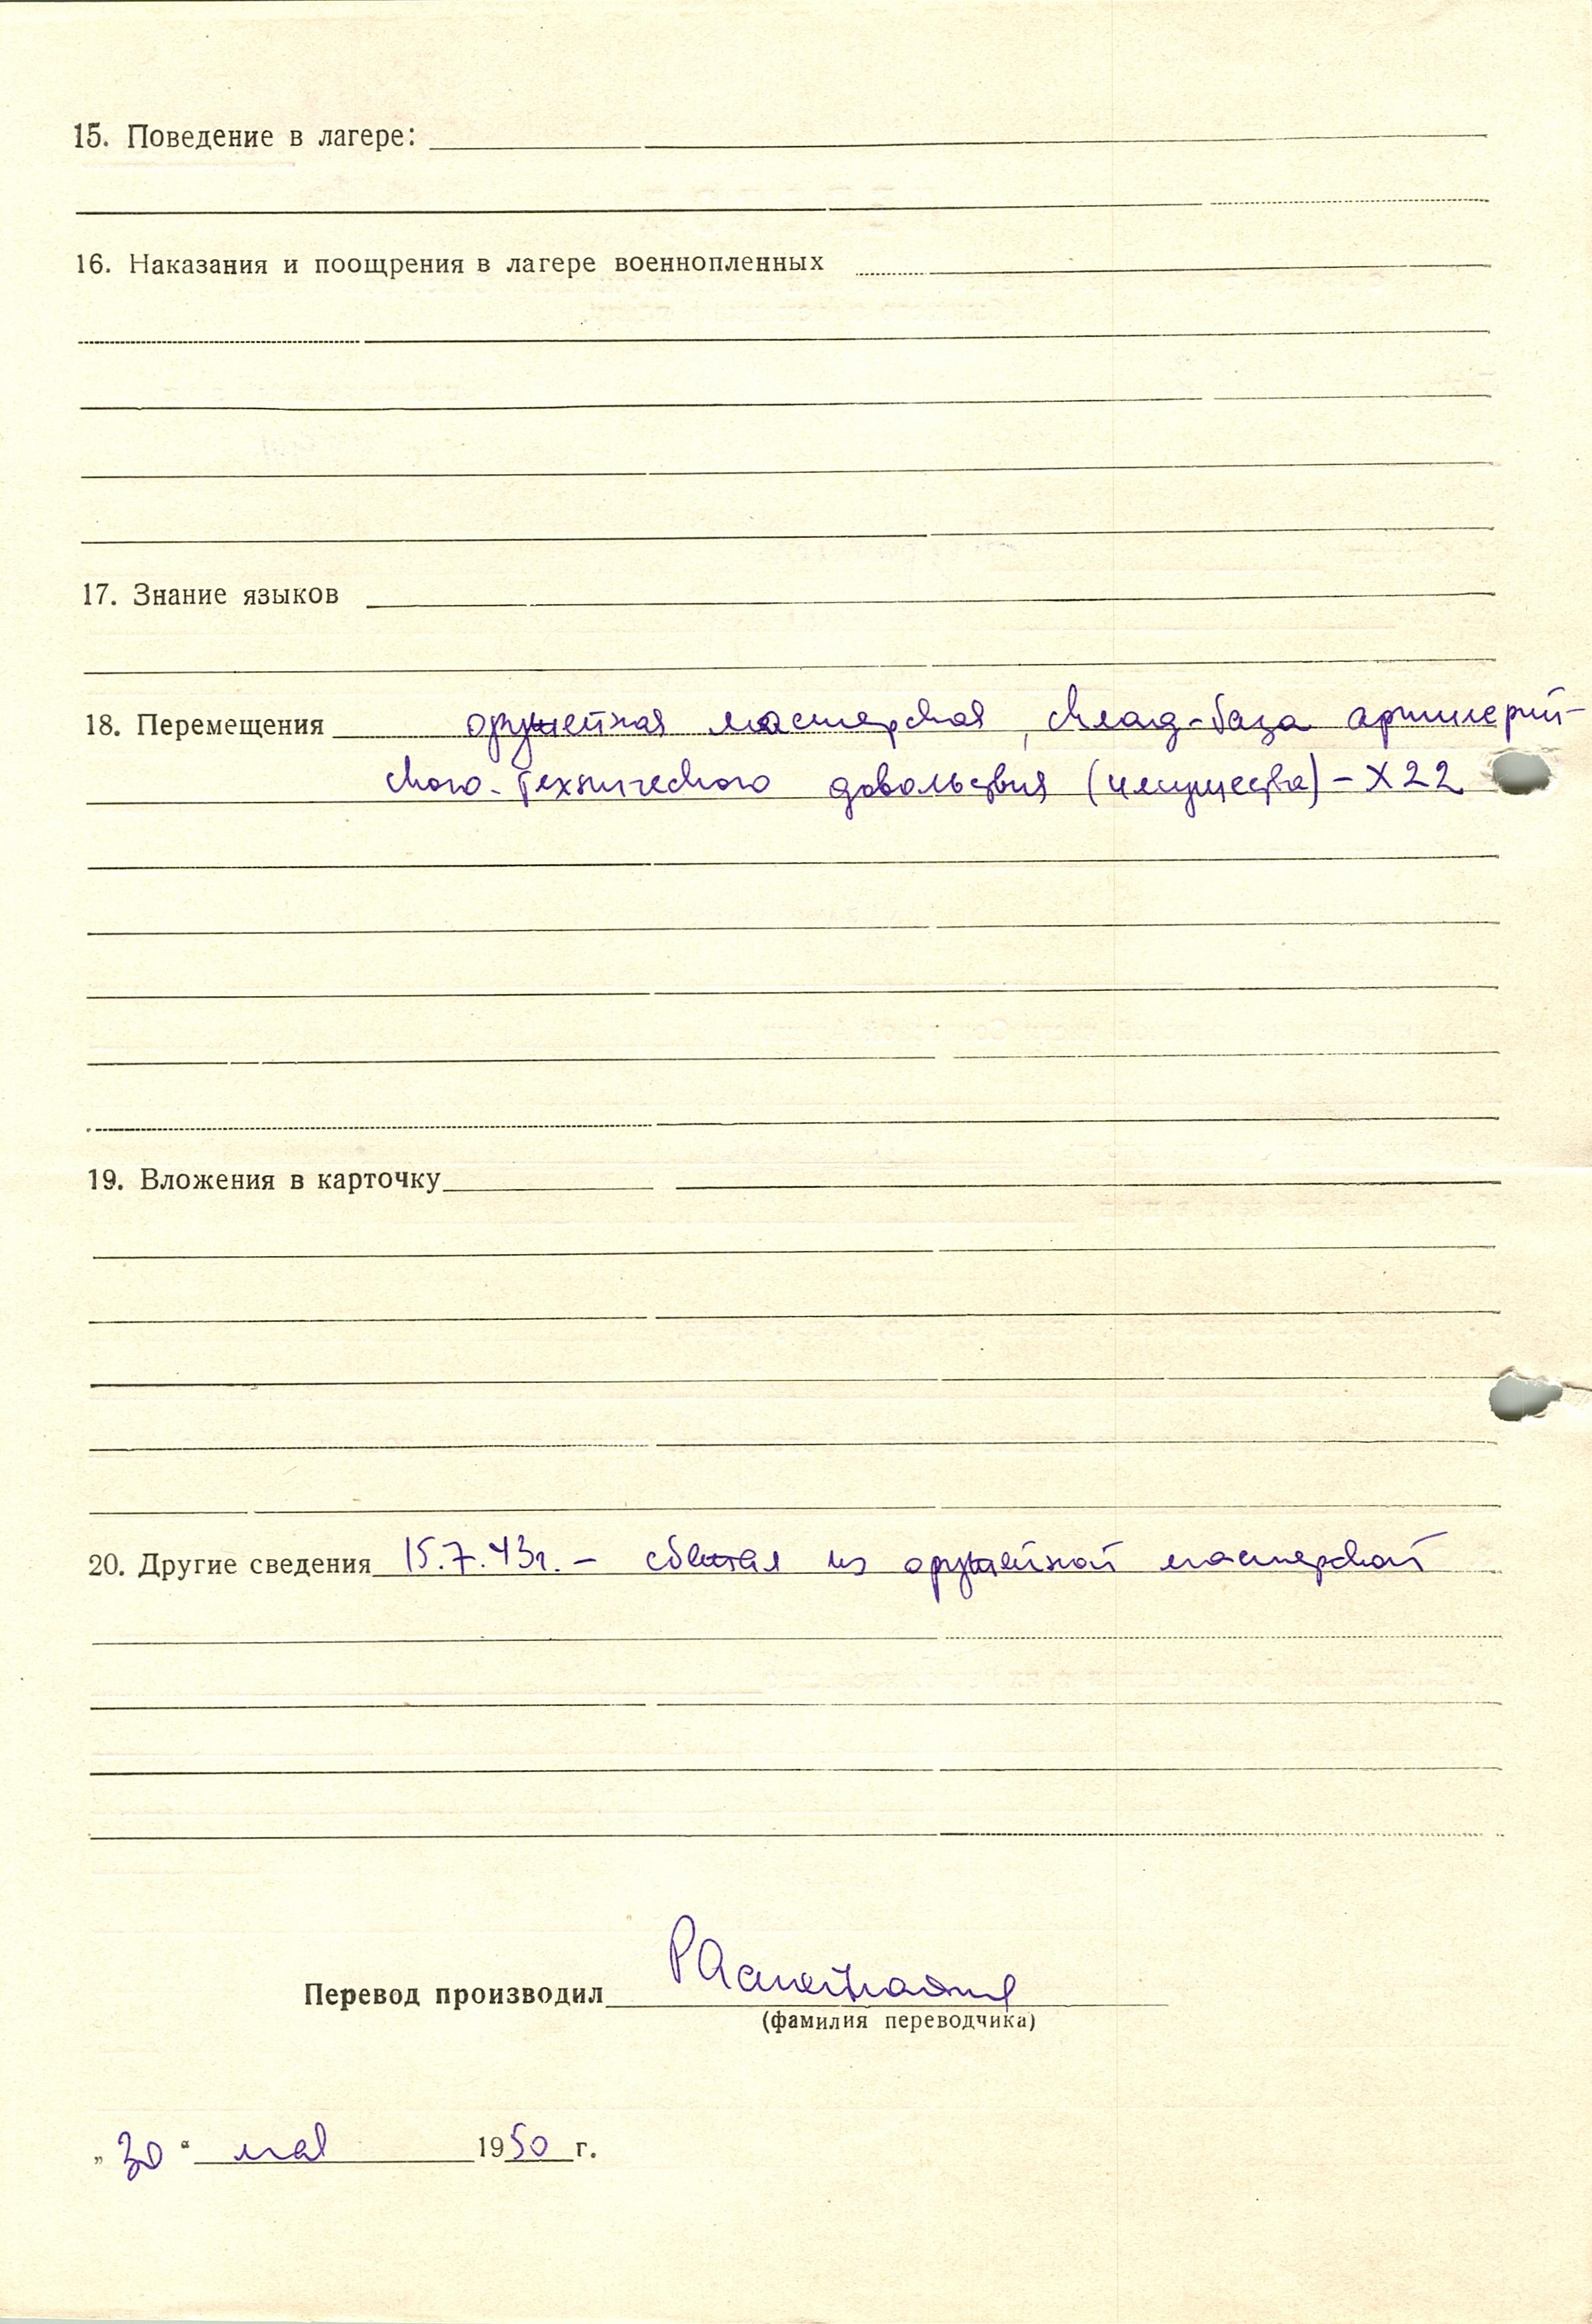 15. Поведение в лагере:
16. Наказания и поощрения в лагере военнопленных
17. Знание языков
18. Перемещения оружейная мастерская, склад-база артиллерий-
ского-технического довольствия (имущества) – X 22
19. Вложения в карточку
20. Другие сведения 15.7.43г. – сбежал из оружейной мастерской
Перевод производил
(фамилия переводчика)
„30“ мая 1950 г.